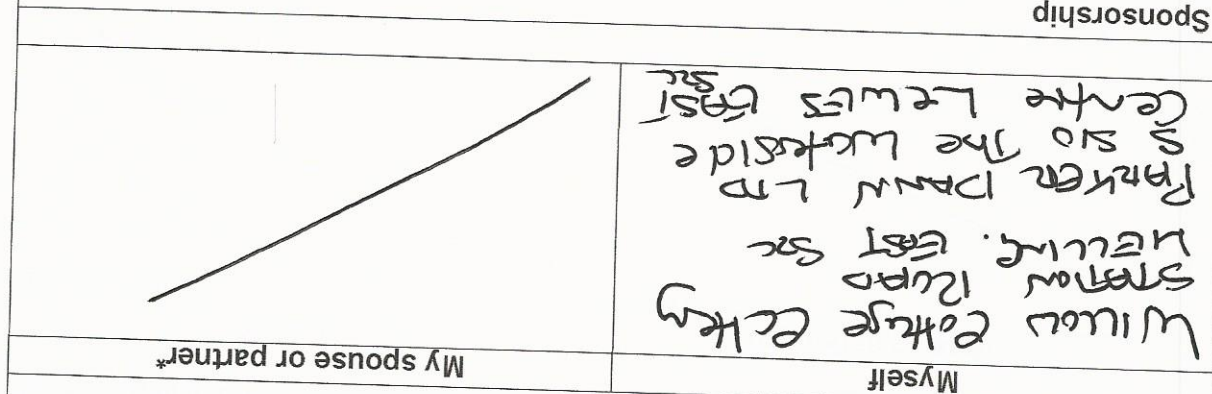 Myself
My spouse or partner*
WILLOW Cottage
STATION ROAD
EAST
PARKER DANN LTD
S10 The Waterside
Centre LEWES EAST
Sponsorship